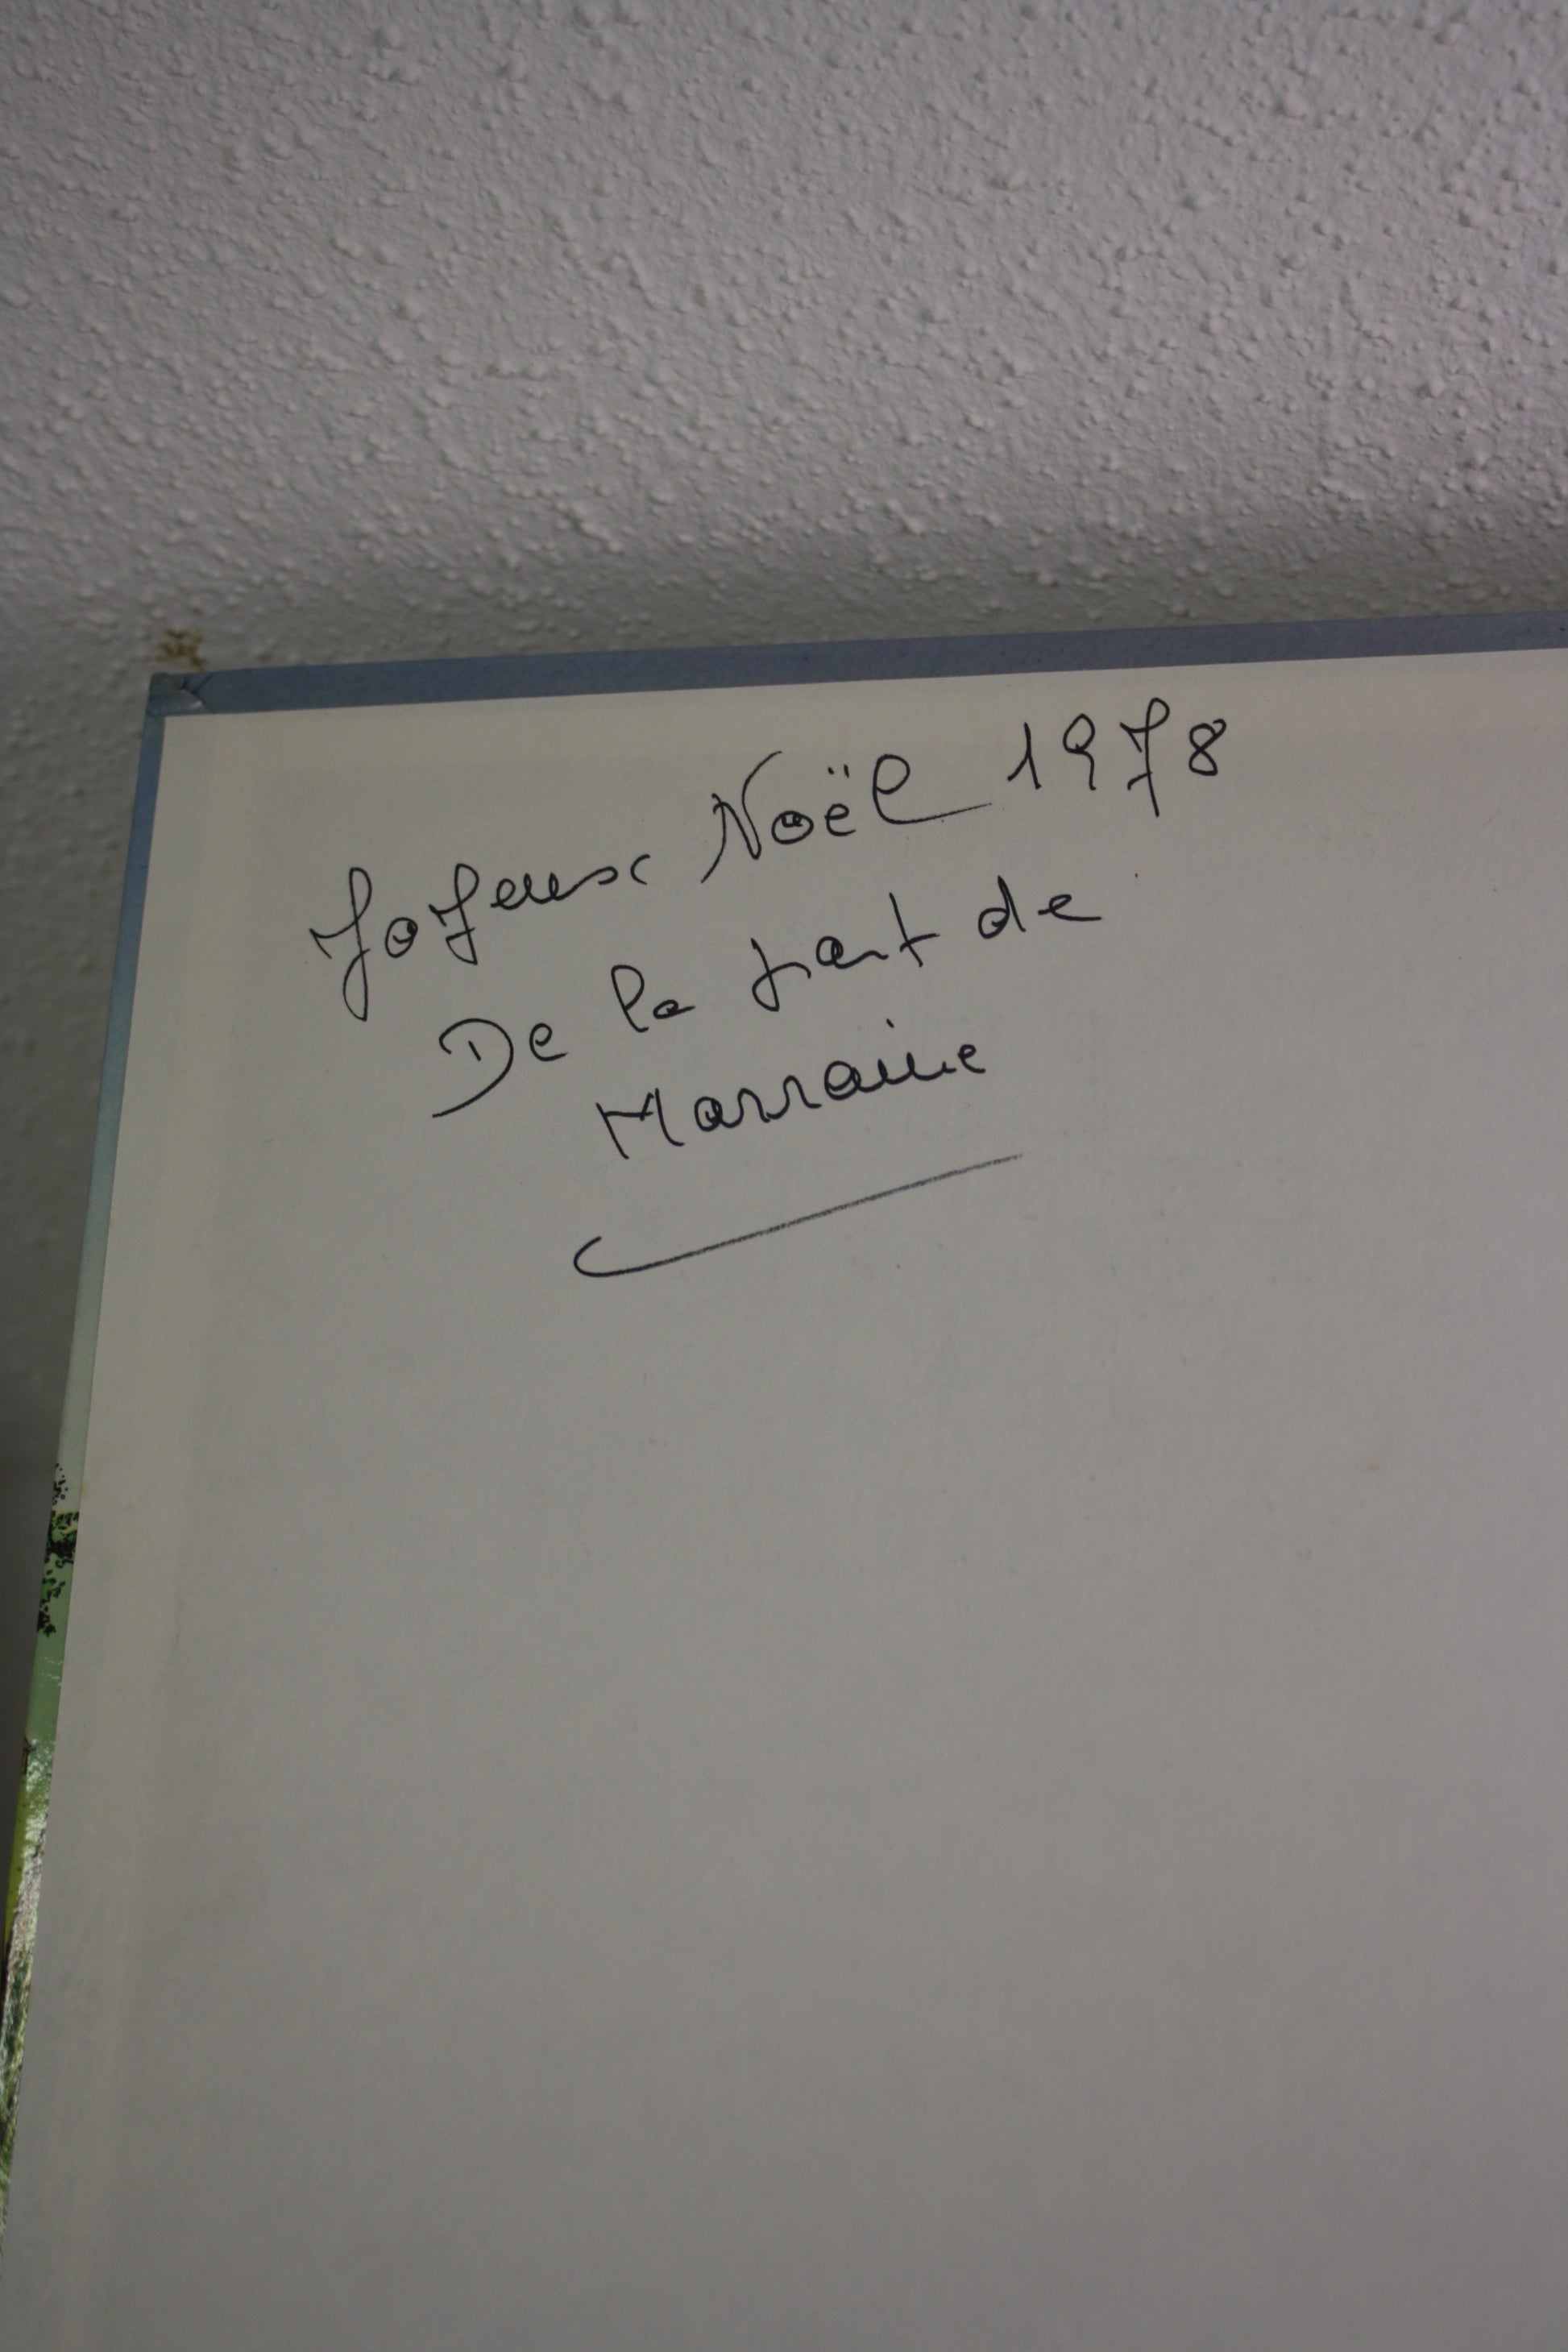 Joyeux Noël 1978
De la part de
Marraine